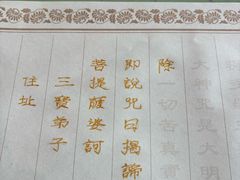 大神咒是大明
除一切苦真實
即說咒曰揭諦
菩提薩婆訶
三寶弟子
住址